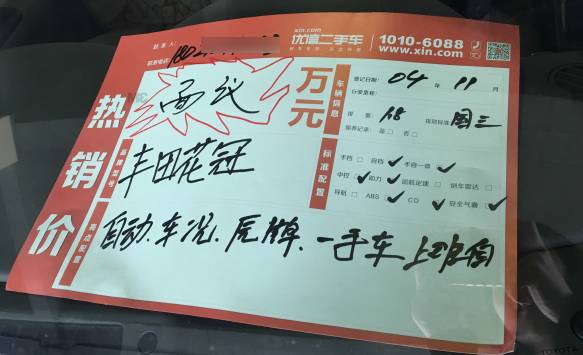 xin.com
优信二手车
1010-6088
www.xin.com
联系人：
联系电话：
热销价
面议
万元
车辆信息
登记日期： 04 年 11 月
行驶里程：
排量： 1.8 排放标准： 国三
保养记录： 是□ 否□
品牌型号
丰田花冠
标准配置
手挡 自挡 手自一体
中控 助力 巡航定速 倒车雷达
导航 ABS CD 安全气囊
亮点配置
自动、车况、
牌、一手车 上班